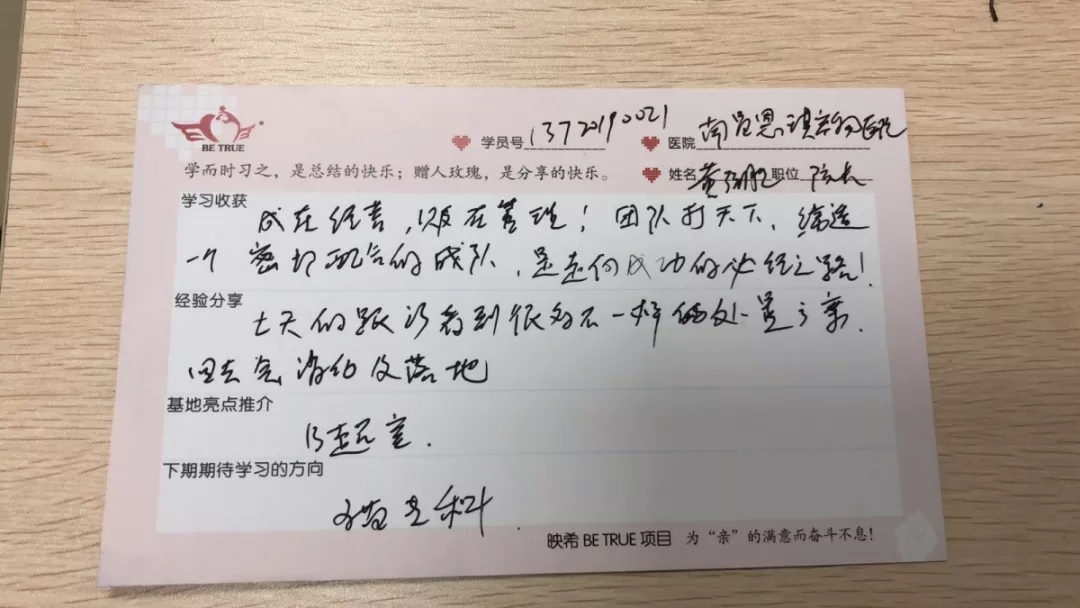 BE TRUE
学员号 13720190021 医院
学而时习之，是总结的快乐；赠人玫瑰，是分享的快乐。 姓名 黄 职位 院长
学习收获
成在经营，赢在管理！团队打天下，缔造
一个密切配合的战队，是走向成功的必经之路！
经验分享
七天的跟诊看到很多不一样的处置方案.
回去会消化及落地
基地亮点推介
B超室.
下期期待学习的方向
映希 BE TRUE 项目 为“亲”的满意而奋斗不息！